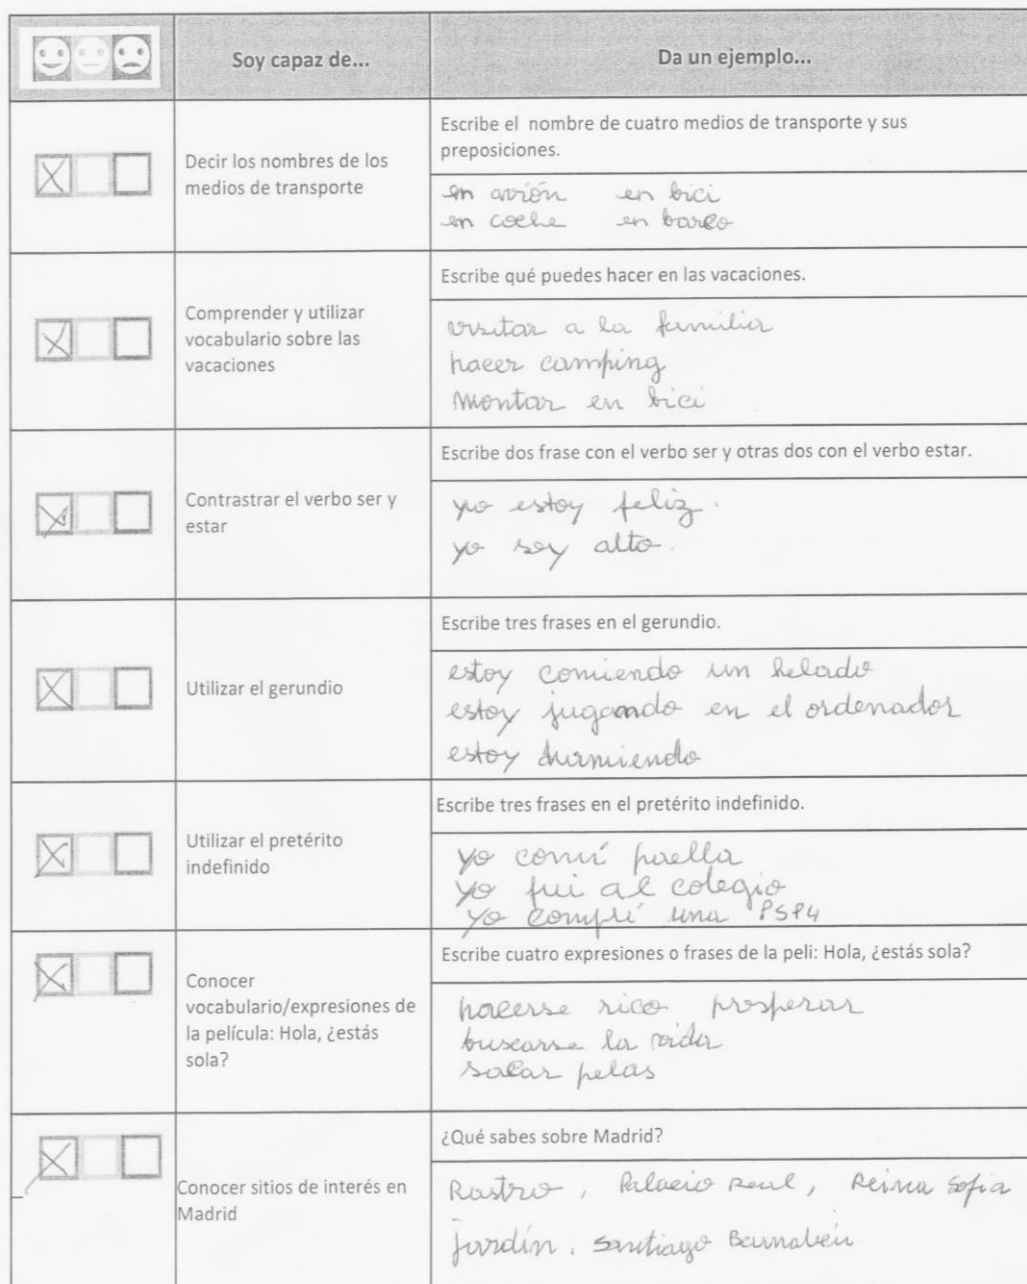 Soy capaz de...
Da un ejemplo...
Decir los nombres de los
medios de transporte
Escribe el nombre de cuatro medios de transporte y sus
preposiciones.
en avión en bici
en coche en barco
Comprender y utilizar
vocabulario sobre las
vacaciones
Escribe qué puedes hacer en las vacaciones.
visitar a la familia
hacer camping
montar en bici
Contrastrar el verbo ser y
estar
Escribe dos frase con el verbo ser y otras dos con el verbo estar.
yo estoy feliz.
yo soy alto.
Utilizar el gerundio
Escribe tres frases en el gerundio.
estoy comiendo un helado
estoy jugando en el ordenador
estoy durmiendo
Utilizar el pretérito
indefinido
Escribe tres frases en el pretérito indefinido.
yo comí paella
yo fui al colegio
yo compré una PSP4
Conocer
vocabulario/expresiones de
la película: Hola, ¿estás
sola?
Escribe cuatro expresiones o frases de la peli: Hola, ¿estás sola?
hacerse rico prosperar
buscarse la vida
sacar pelas
Conocer sitios de interés en
Madrid
¿Qué sabes sobre Madrid?
Rastro, Palacio real, Reina Sofia
jardín. Santiago Barnabéu